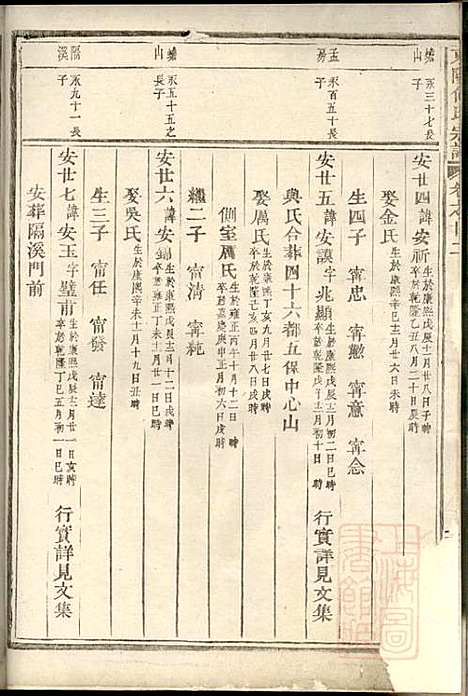 東陽何氏宗譜
蟾山 永三十七長子
安廿四 諱安祈 生於康熙戊辰十二月廿八日子時 卒於乾隆乙亥八月二十日辰時
娶金氏 生於康熙辛巳十二月廿六日未時
生四子 甯忠 甯懃 甯意 甯念
孟房 永百五十長子
安廿五 諱安謨 字兆顯 生於康熙戊辰十二月初二日辰時 卒於乾隆 正月初十日 時 行實詳見文集
娶厲氏 生於康熙丁亥九月廿七日戌時 卒於乾隆己亥四月廿八日戌時
與氏合葬四十六都五保中心山
側室厲氏 生於雍正丙午十月十二日 時 卒於嘉慶庚申正月初六日戌時
蟾山 永五十五之長子
安廿六 諱安 生於康熙戊辰 月十二日戌時 卒於雍正戊午十二月廿一日巳時
繼二子 甯清 甯純
娶吳氏 生於康熙辛未十二月十九日丑時
生三子 甯任 甯發 甯達
隔溪 永九十一長子
安廿七 諱安玉 字璧甫 生於康熙戊辰十二月廿一日亥時 卒於乾隆丁巳五月初一日巳時 行實詳見文集
安葬隔溪門前
上海圖書館藏